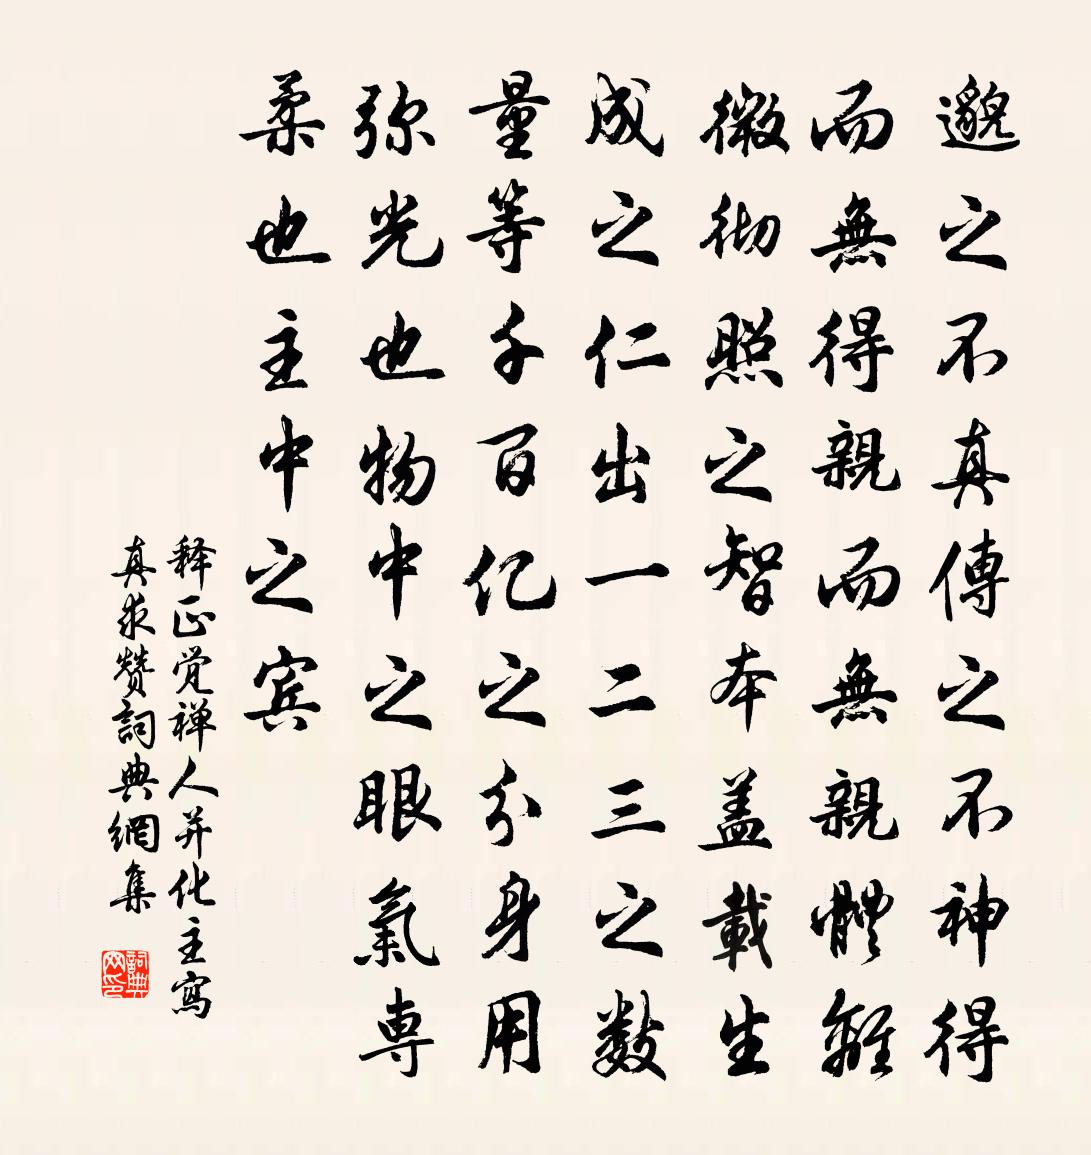 邈之不真傳之不神得
而無得親而無親體離
微徹照之智本蓋載生
成之仁出一二三之數
量等千百亿之分身用
弥光也物中之眼氣専
柔也主中之宾
释正觉禅人并化主寫
真求赞詞典網集
詞典网印